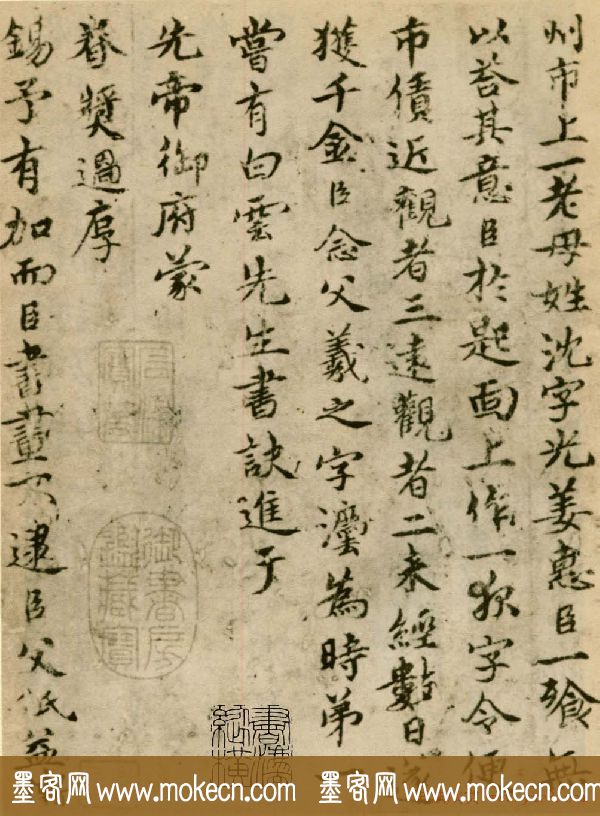 州市上一老母姓沈字光姜惠臣一飡無
以荅其意臣於匙面上作一夜字令便
市債近觀者三遠觀者二未經數日遂
獲千金臣念父羲之字法為時第一
嘗有白雲先生書訣進于
先帝御府蒙
眷奬過厚
錫予有加而臣書畫不逮臣父祇益
御書房鑑藏寶
墨客网 www.mokecn.com 墨客网 www.mokecn.com